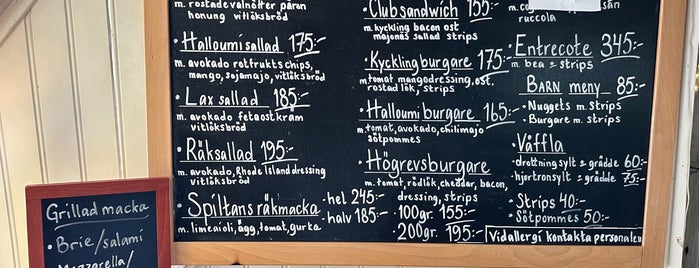 m. rostade valnötter päron
honung vitlöksbröd
· Halloumisallad 175:-
m. avokado rotfrukts chips,
mango, sojamajo, vitlöksbröd
· Lax sallad 185:-
m. avokado fetaostkräm
vitlöksbröd
· Räksallad 195:-
m. avokado, Rhode Island dressing
vitlöksbröd
· Spiltans räkmacka · hel 245:-
halv 185:-
m. limeaioli, ägg, tomat, gurka
· Club sandwich 155:-
m. kyckling bacon ost
majonäs sallad strips
Kycklingburgare 175:-
m. tomat mangodressing, ost,
rostad lök, strips
· Halloumi burgare 165:-
m. tomat, avokado, chilimajo
sötpommes
· Högrevsburgare
m. tomat, rödlök, cheddar, bacon,
dressing, strips
· 100gr. 155:-
· 200gr. 195:-
ruccola
· Entrecote 345:-
m. bea & strips
BARN meny 85:-
· Nuggets m. strips
· Burgare m. strips
· Våffla
· drottningsylt & grädde 60:-
· hjortronsylt & grädde 75:-
· Strips 40:-
· Sötpommes 50:-
Vid allergi kontakta personalen
Grillad macka
· Brie/salami
Mozzarella/